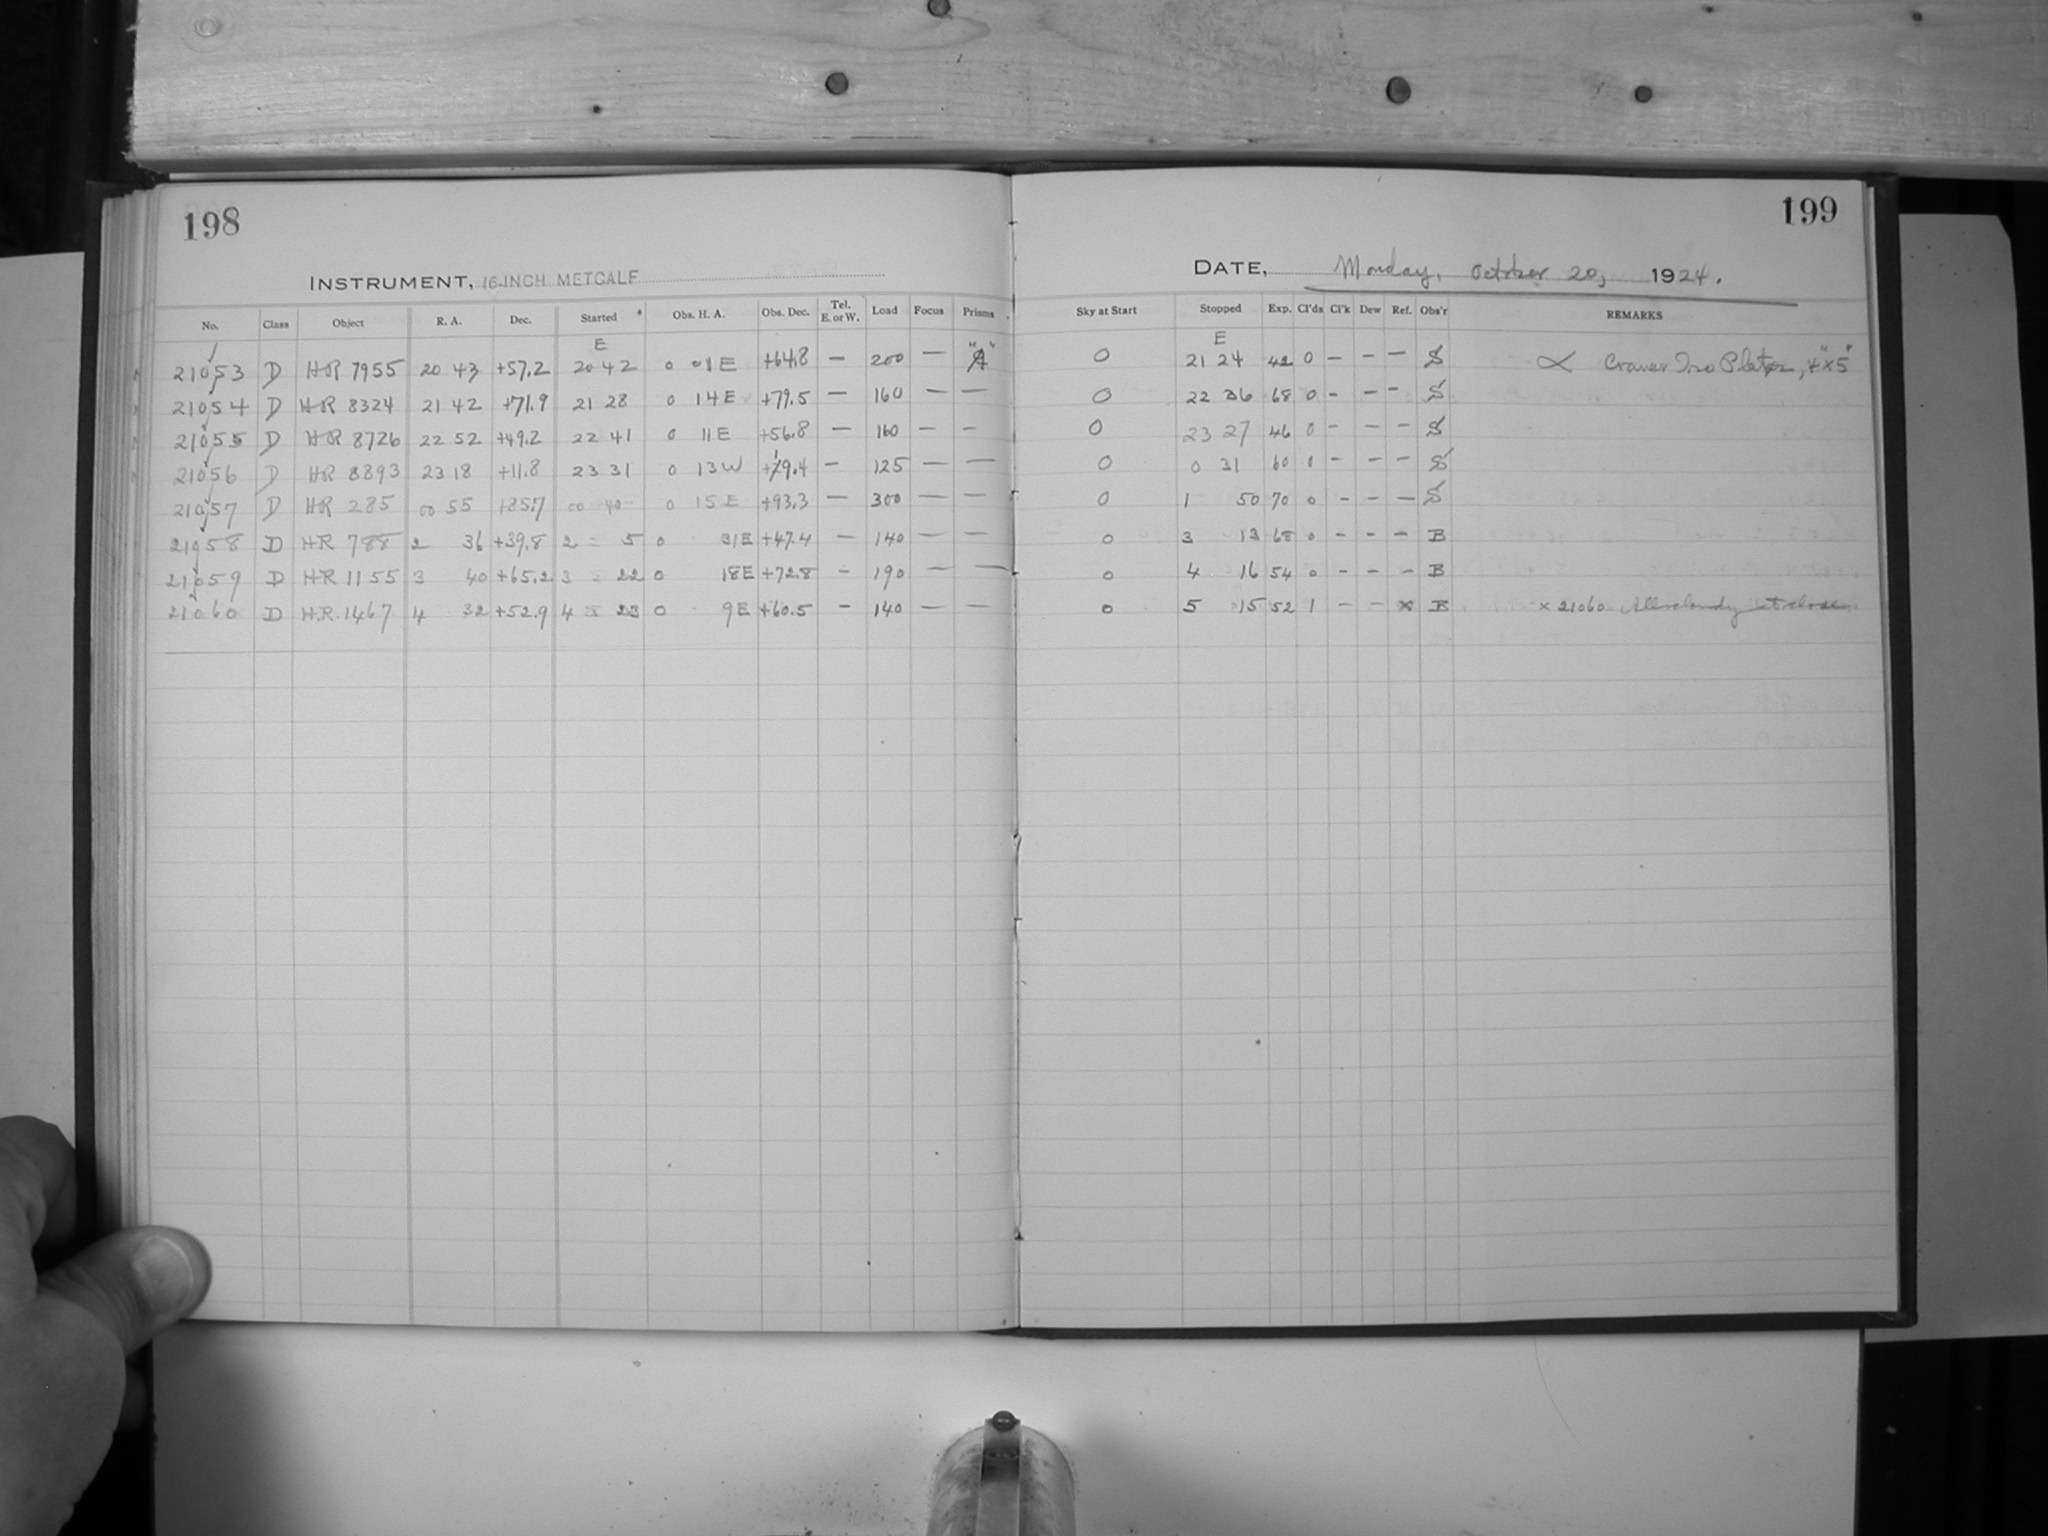 198
INSTRUMENT, 16-INCH METCALF
No. Class Object R. A. Dec. Started Obs. H. A. Obs. Dec. Tel. E. or W. Load Focus Prisms
E
21053 D HR 7955 20 43 +57.2 20 42 0 01 E +64.8 — 200 — "A"
21054 D HR 8324 21 42 +71.9 21 28 0 14 E +79.5 — 160 — —
21055 D HR 8726 22 52 +49.2 22 41 0 11 E +56.8 — 160 — —
21056 D HR 8893 23 18 +11.8 23 31 0 13 W +19.4 — 125 — —
21057 D HR 285 00 55 +85.7 00 40 0 15 E +93.3 — 300 — —
21058 D HR 788 2 36 +39.8 2 5 0 31 E +47.4 — 140 — —
21059 D HR 1155 3 40 +65.2 3 22 0 18 E +72.8 - 190 — —
21060 D H.R. 1467 4 32 +52.9 4 23 0 9 E +60.5 — 140 — —
199
DATE, Monday, October 20, 1924.
Sky at Start Stopped Exp. Cl'ds Cl'k Dew Ref. Obs'r REMARKS
E
0 21 24 42 0 — — — S ∝ Cramer Iso Plates, 4"x5"
0 22 36 68 0 - — - S
0 23 27 46 0 - — — S
0 0 31 60 0 - — — S
0 1 50 70 0 - — — S
0 3 13 68 0 - — — B
0 4 16 54 0 — — — B
0 5 15 52 1 — — x B x 21060 All cloudy at close.